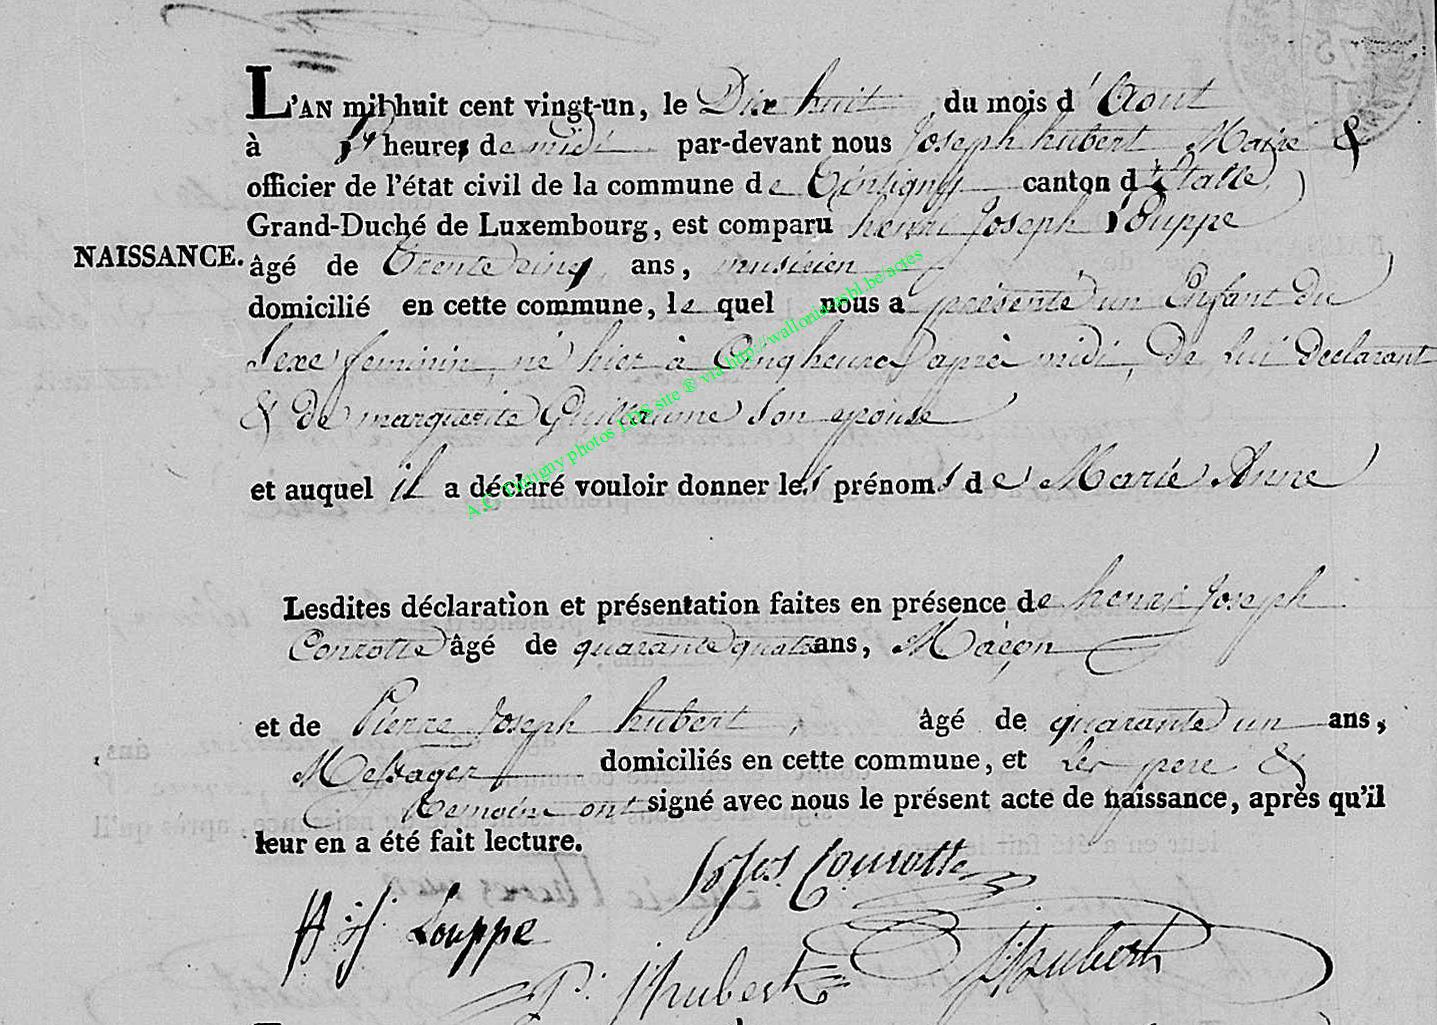 L'AN mil huit cent vingt-un, le Dix huit du mois d'Aout
à heure de midi par-devant nous Joseph hubert Maire &
officier de l'état civil de la commune de Tintigny canton d'Etalle,
Grand-Duché de Luxembourg, est comparu henri Joseph Louppe
NAISSANCE. âgé de trente cinq ans, musicien
domicilié en cette commune, le quel nous a présenté un Enfant du
Sexe feminin, né hier à Cinq heures après midi, De lui Declarant
& De marguerite Guillaume Son epouse
et auquel il a déclaré vouloir donner les prénoms de Marie Anne
Lesdites déclaration et présentation faites en présence de henri Joseph
Conrotte âgé de quarante quatre ans, Maçon
et de Pierre Joseph hubert, âgé de quarante un ans,
Messager domiciliés en cette commune, et Les pere &
temoins ont signé avec nous le présent acte de naissance, après qu'il
leur en a été fait lecture.
Conrotte
H. J. Louppe
P. J hubert
J hubert
A.C. Tintigny photos LDS site ® via http://wallonia.asbl.be/actes